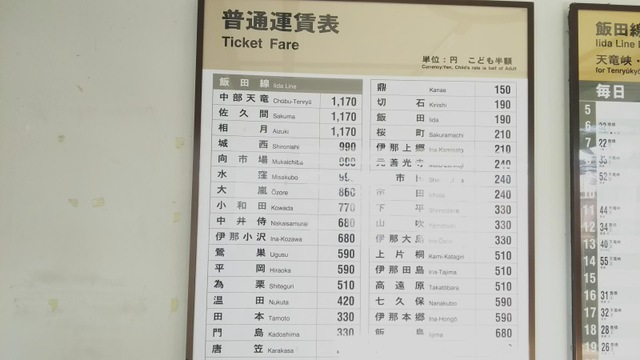 普通運賃表
Ticket Fare
単位:円 こども半額
Currency:Yen, Child's rate is half of Adult
飯田線 Iida Line
中部天竜 Chūbu-Tenryū 1,170
佐久間 Sakuma 1,170
相月 Aizuki 1,170
城西 Shironishi 990
向市場 Mukaichiba
水窪 Misakubo
大嵐 Ōzore 860
小和田 Kowada 770
中井侍 Nakaisamurai 680
伊那小沢 Ina-Kozawa 680
鶯巣 Ugusu 590
平岡 Hiraoka 590
為栗 Shiteguri 510
温田 Nukuta 420
田本 Tamoto 330
門島 Kadoshima 330
唐笠 Karakasa
鼎 Kanae 150
切石 Kiriishi 190
飯田 Iida 190
桜町 Sakuramachi 210
伊那上郷 Ina-Kamisato 210
元善光寺 240
市 240
田 240
下平 330
山吹 330
伊那大島 330
上片桐 Kami-Katagiri 510
伊那田島 Ina-Tajima 510
高遠原 Takatōbara 510
七久保 Nanakubo 590
伊那本郷 Ina-Hongō 590
飯島 Iijima 680
飯田線
Iida Line
天竜峡・
for Tenryūkyō
毎日
5
6
7 22
8 35
9 52
11 44
12 34
13 40
14 55
15
16 31
17 32
18 28
19 26